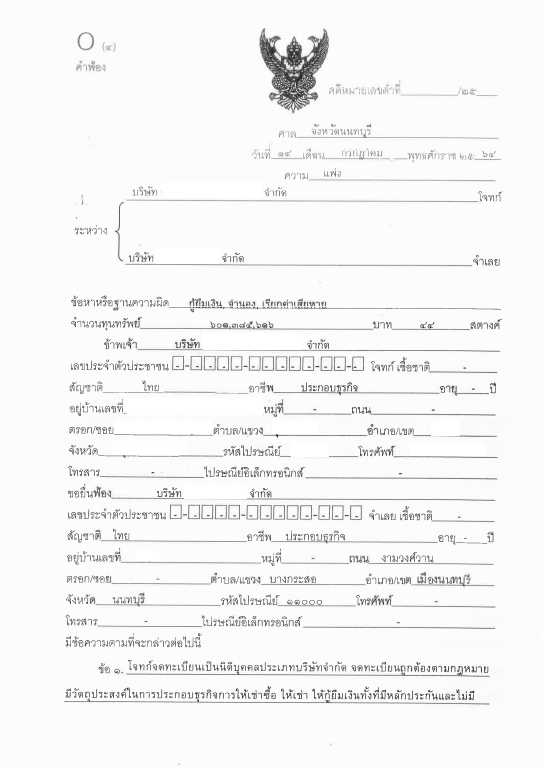 O (๔)
คำฟ้อง
คดีหมายเลขดำที่ /๒๕
ศาล จังหวัดนนทบุรี
วันที่ ๑๔ เดือน กรกฎาคม พุทธศักราช ๒๕ ๖๔
ความ แพ่ง
บริษัท จำกัด โจทก์
ระหว่าง
บริษัท จำกัด จำเลย
ข้อหาหรือฐานความผิด กู้ยืมเงิน, จำนอง, เรียกค่าเสียหาย
จำนวนทุนทรัพย์ ๖๐๑,๓๘๕,๖๑๖ บาท ๔๔ สตางค์
ข้าพเจ้า บริษัท จำกัด
เลขประจำตัวประชาชน - - - - - - - - - - - - - โจทก์ เชื้อชาติ -
สัญชาติ ไทย อาชีพ ประกอบธุรกิจ อายุ - ปี
อยู่บ้านเลขที่ หมู่ที่ - ถนน -
ตรอก/ซอย ตำบล/แขวง อำเภอ/เขต
จังหวัด รหัสไปรษณีย์ โทรศัพท์
โทรสาร - ไปรษณีย์อิเล็กทรอนิกส์ -
ขอยื่นฟ้อง บริษัท จำกัด
เลขประจำตัวประชาชน - - - - - - - - - - - - - จำเลย เชื้อชาติ -
สัญชาติ ไทย อาชีพ ประกอบธุรกิจ อายุ - ปี
อยู่บ้านเลขที่ หมู่ที่ - ถนน งามวงศ์วาน
ตรอก/ซอย - ตำบล/แขวง บางกระสอ อำเภอ/เขต เมืองนนทบุรี
จังหวัด นนทบุรี รหัสไปรษณีย์ ๑๑๐๐๐ โทรศัพท์ -
โทรสาร - ไปรษณีย์อิเล็กทรอนิกส์ -
มีข้อความตามที่จะกล่าวต่อไปนี้
ข้อ ๑. โจทก์จดทะเบียนเป็นนิติบุคคลประเภทบริษัทจำกัด จดทะเบียนถูกต้องตามกฎหมาย
มีวัตถุประสงค์ในการประกอบธุรกิจการให้เช่าซื้อ ให้เช่า ให้กู้ยืมเงินทั้งที่มีหลักประกันและไม่มี